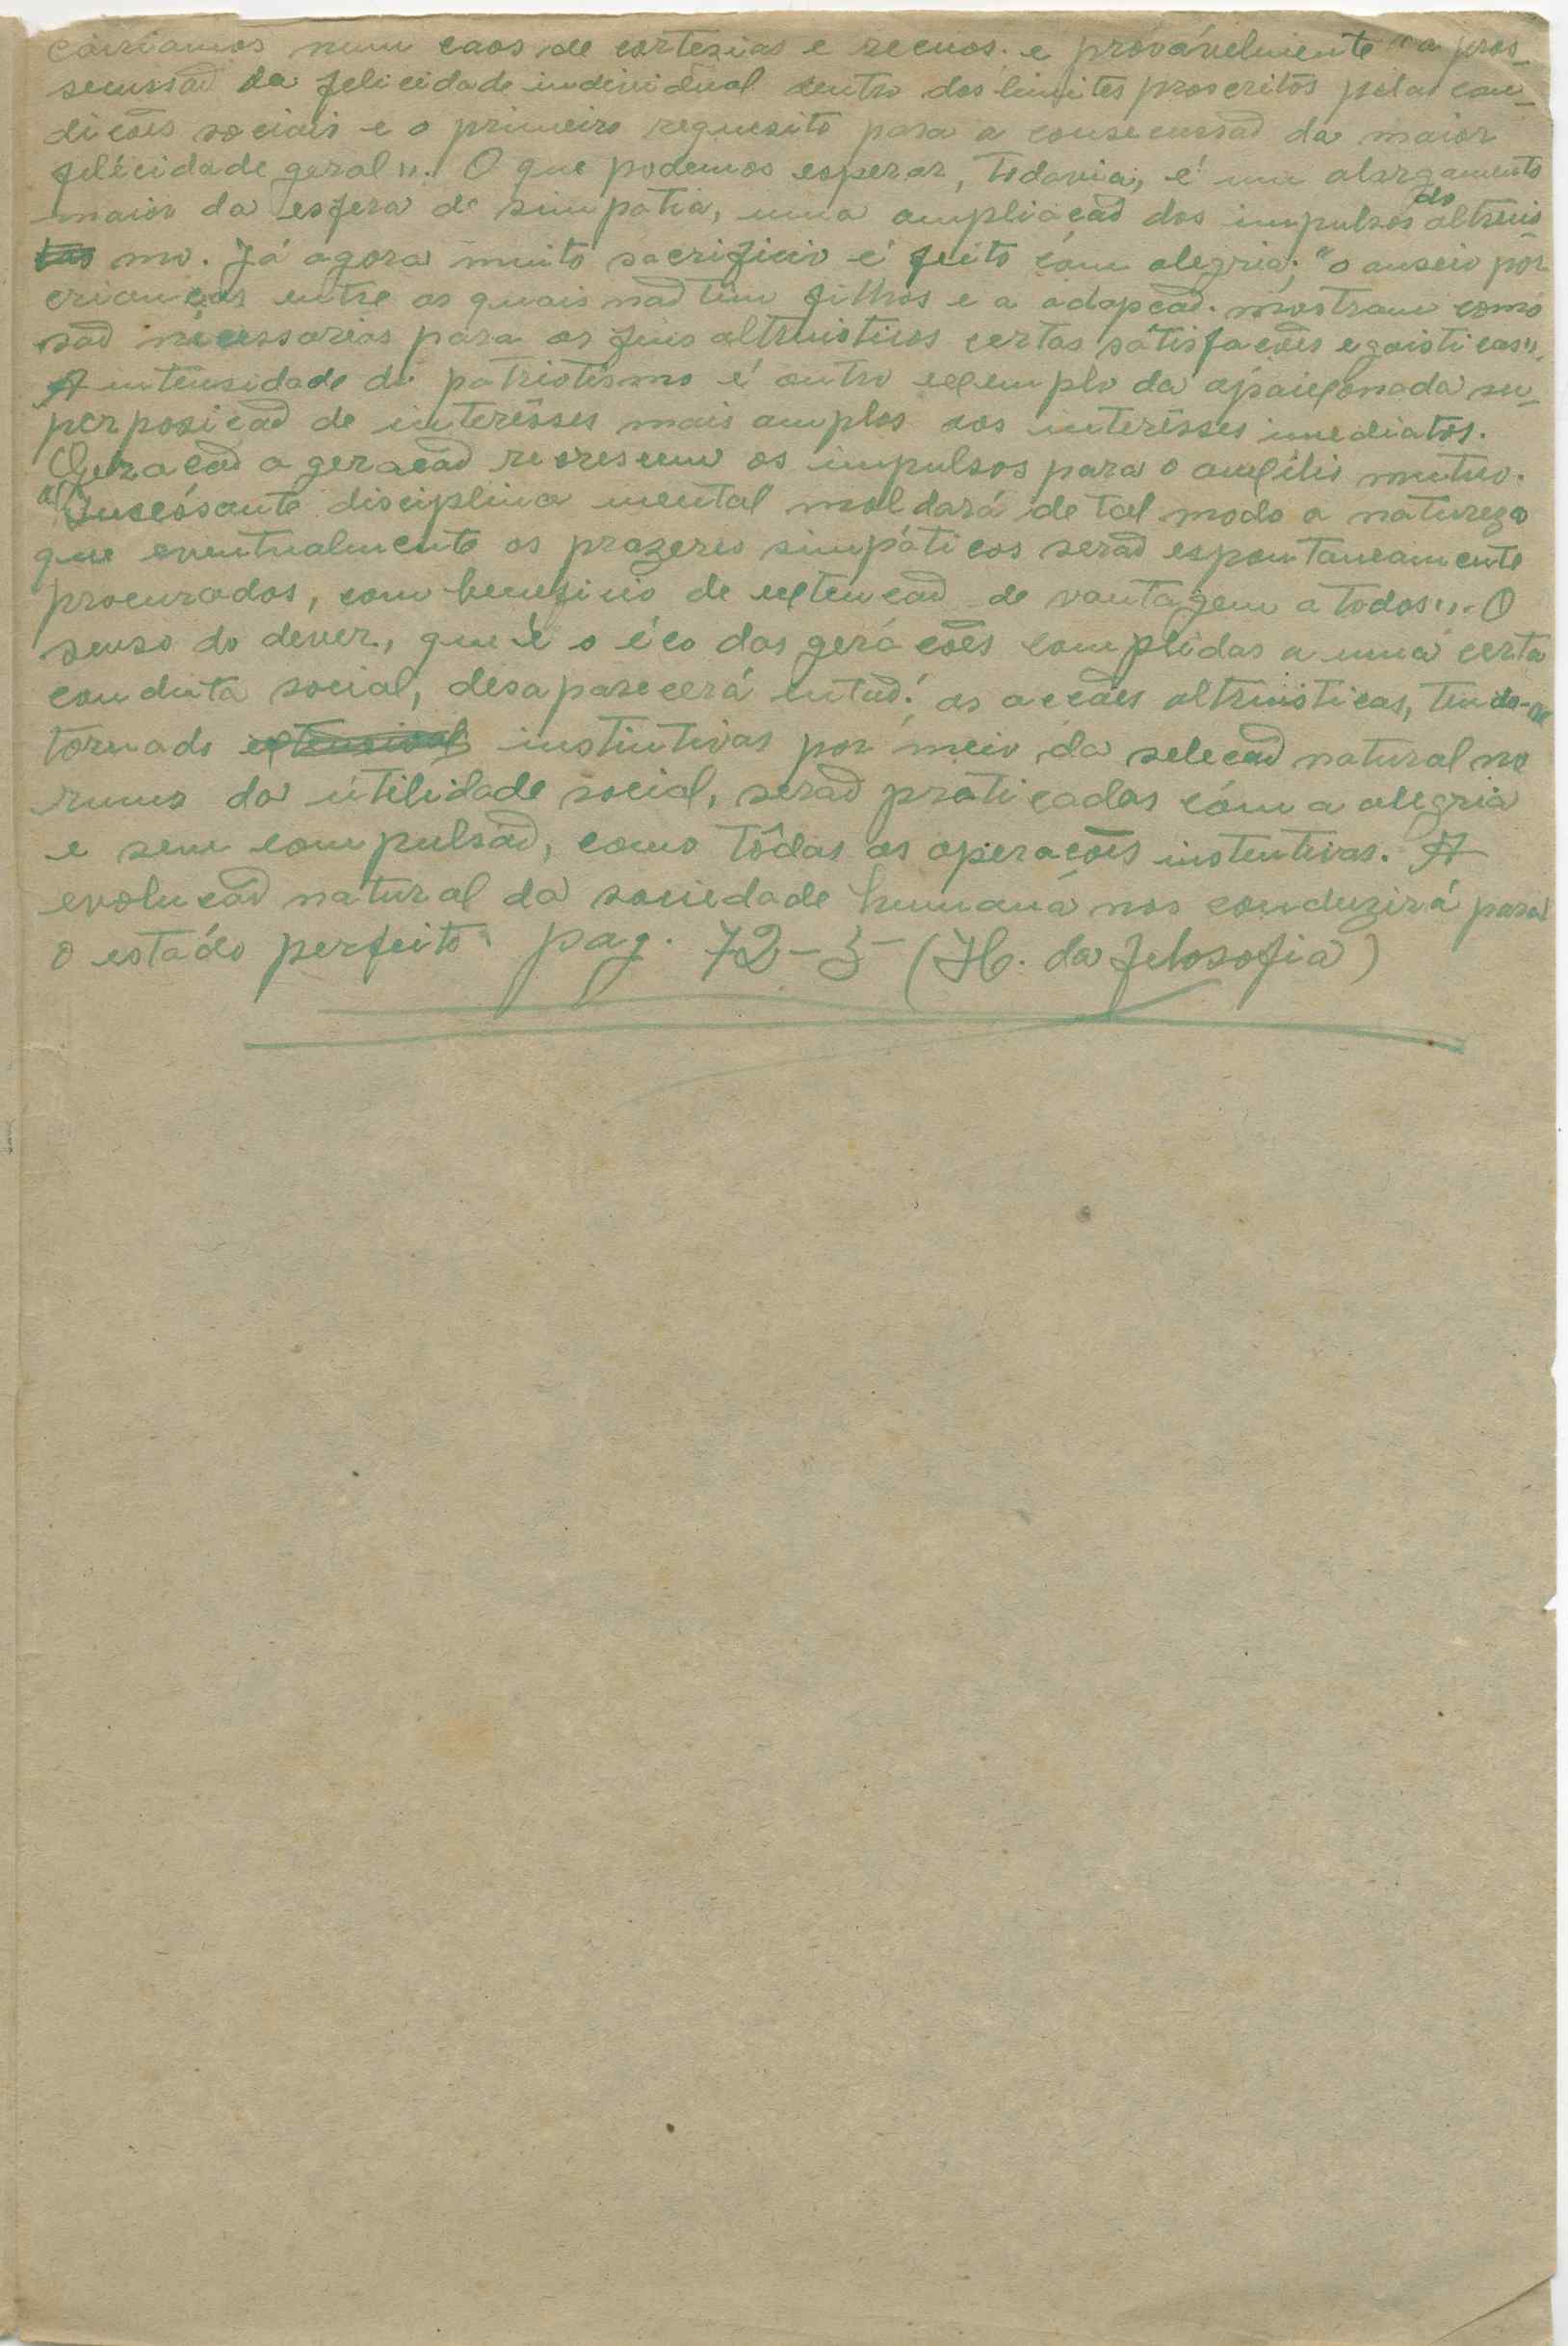 cairíamos num caos de cortezias e recuos. e provávelmente "a pros-
secussaõ da felicidade individual dentro dos limites proscritos pelas con-
dicoẽs sociais e o primeiro requesito para a consecussaõ da maior
felicidade geral". O que podemos esperar, todavia, é um alargamento
maior da esfera de simpatia, uma ampliacaõ dos impulsos do altruis-
mo. Já agora muito sacrificio é feito com alegria; "o anseio por
criancas entre as quais naõ tem filhos e a adapcaõ. mostram como
saõ necessarias para os fins altruisticos certas satisfacoẽs egoisticas".
A intensidade do patriotismo é outro exemplo da apaixonada su-
perposicaõ de interêsses mais amplos aos interêsses imediatos.
Geracaõ a geracaõ recrescem os impulsos para o auxilio mutuo.
"Incessante disciplina mental moldará de tal modo a natureza
que eventualmente os prazeres simpáticos seraõ espontaneamente
procurados, com beneficio de extencaõ de vantagem a todos". O
senso do dever, que é o éco das geracoẽs compelidas a uma certa
conduta social, desaparecerá entaõ; as accoẽs altruisticas, tendo-se
tornado instintivas por meio da selecaõ natural no
rumo da utilidade social, seraõ praticadas com a alegria
e sem compulsaõ, como tôdas as operacoẽs instentivas. A
evolucaõ natural da sociedade humana nos conduzirá para
o estado perfeito. pag. 72-5 (H. da felosofia)